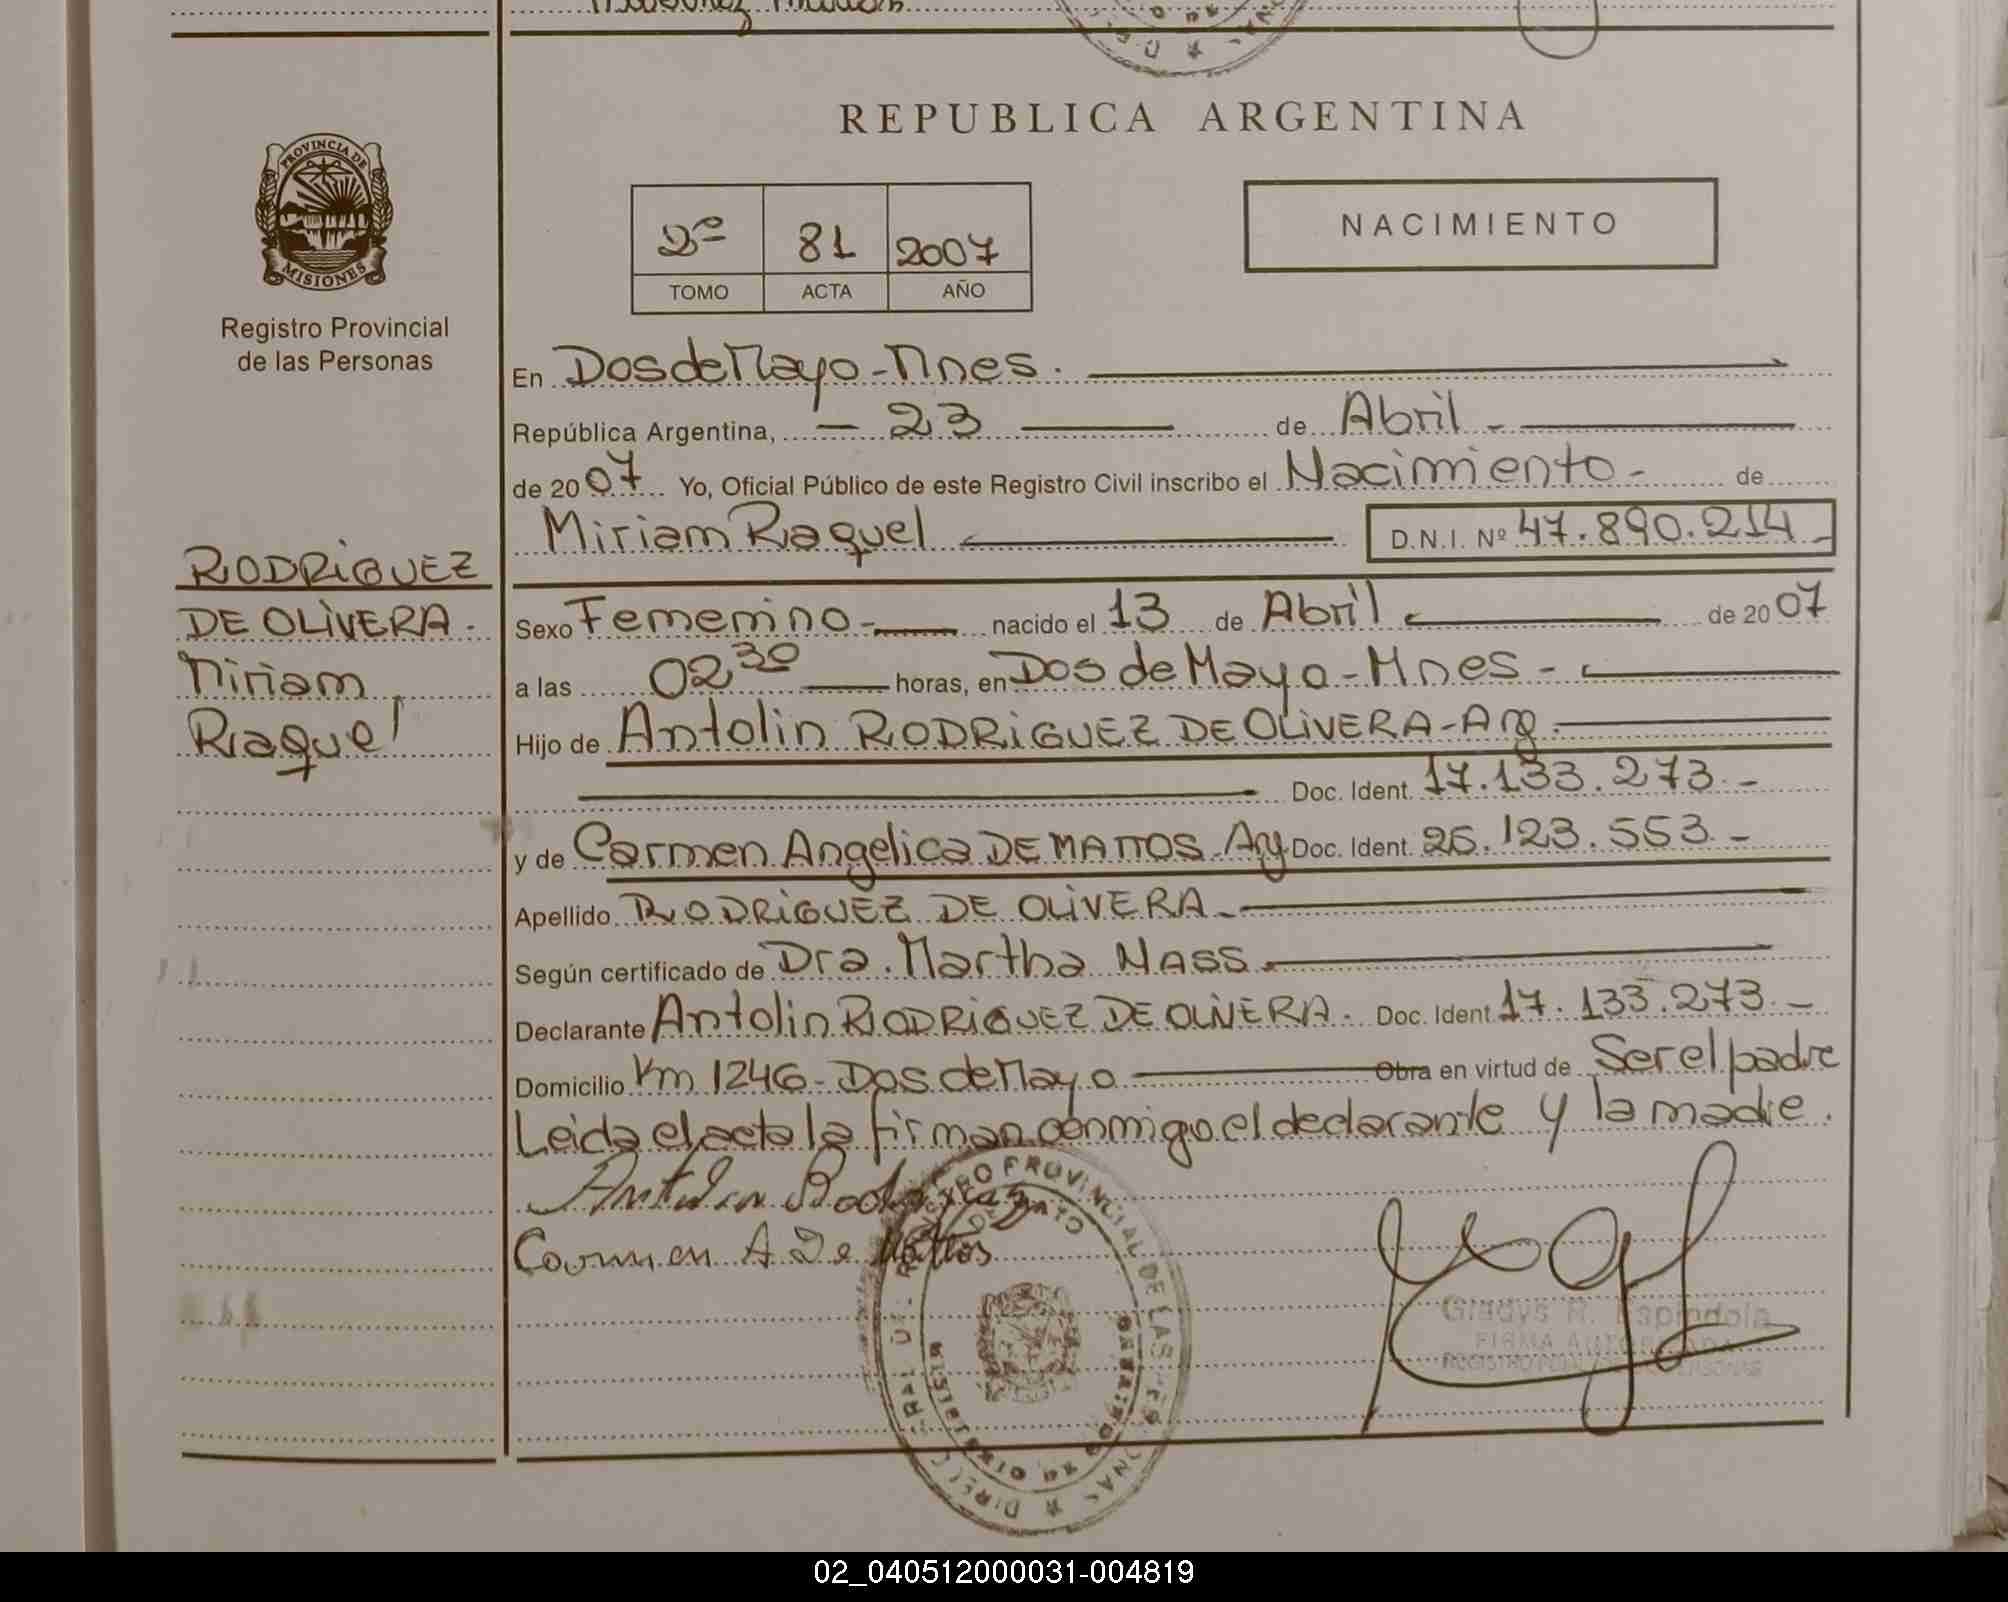 REPUBLICA ARGENTINA
PROVINCIA DE
MISIONES
Registro Provincial
de las Personas
2º 81 2007
TOMO ACTA AÑO
NACIMIENTO
RODRIGUEZ
DE OLIVERA.
Miriam
Raquel
En Dos de Mayo - Mnes.
República Argentina, - 23 de Abril -
de 2007 Yo, Oficial Público de este Registro Civil inscribo el Nacimiento - de
Miriam Raquel D.N.I. Nº 47.890.214 -
Sexo Femenino - nacido el 13 de Abril de 2007
a las 02 30 horas, en Dos de Mayo - Mnes -
Hijo de Antolin RODRIGUEZ DE OLIVERA - Arg.
Doc. Ident. 17.133.273 -
y de Carmen Angelica DE MATTOS - Arg. Doc. Ident. 25.123.553 -
Apellido RODRIGUEZ DE OLIVERA -
Según certificado de Dra. Martha MASS.
Declarante Antolin RODRIGUEZ DE OLIVERA. Doc. Ident 17.133.273 -
Domicilio Km 1246 - Dos de Mayo Obra en virtud de Ser el padre
Leida el acta la firman conmigo el declarante y la madre.
Antolin Rodriguez
Carmen A. De Mattos
Gladys R. Espindola
FIRMA AUTORIZADA
02_040512000031-004819